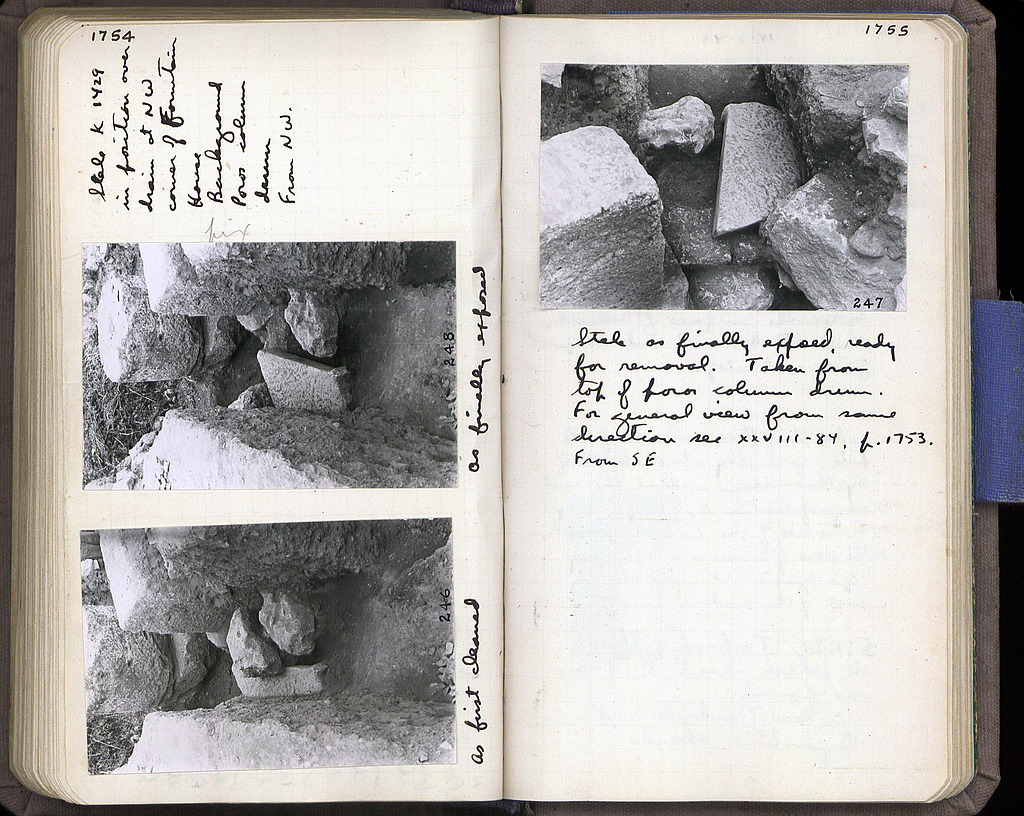 1754
Stele K 1429
in position over
drain at NW
corner of Fountain
House
Background
Poros column
drum
From NW.
248
as finally exposed
246
as first cleaned
1755
247
Stele as finally exposed, ready
for removal. Taken from
top of poros column drum.
For general view from same
direction see XXVIII-84, p. 1753.
From SE